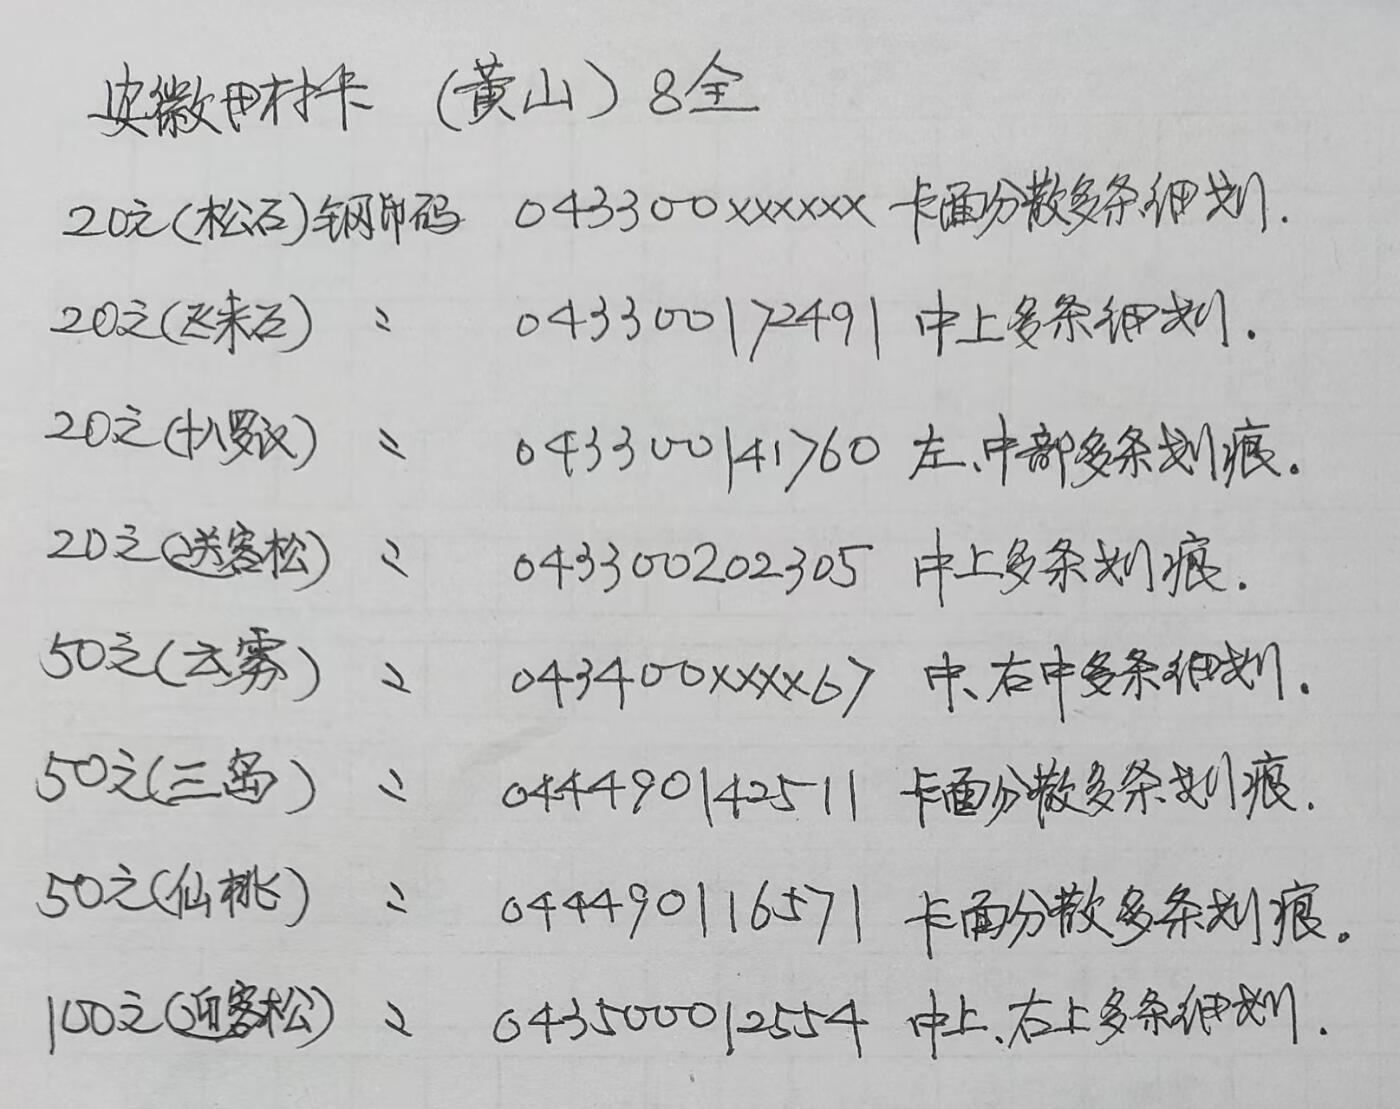 安徽田村卡 (黄山) 8全
20元(松石)钢印码 043300xxxxxx 卡面分散多条细划.
20元(飞来石) 〃 043300172491 中上多条细划.
20元(十八罗汉) 〃 043300141760 左、中部多条划痕。
20元(送客松) 〃 043300202305 中上多条划痕.
50元(云雾) 〃 043400xxxx67 中、右中多条细划.
50元(三岛) 〃 044490142511 卡面分散多条划痕.
50元(仙桃) 〃 044490116571 卡面分散多条划痕。
100元(迎客松) 〃 043500012554 中上、右上多条细划.